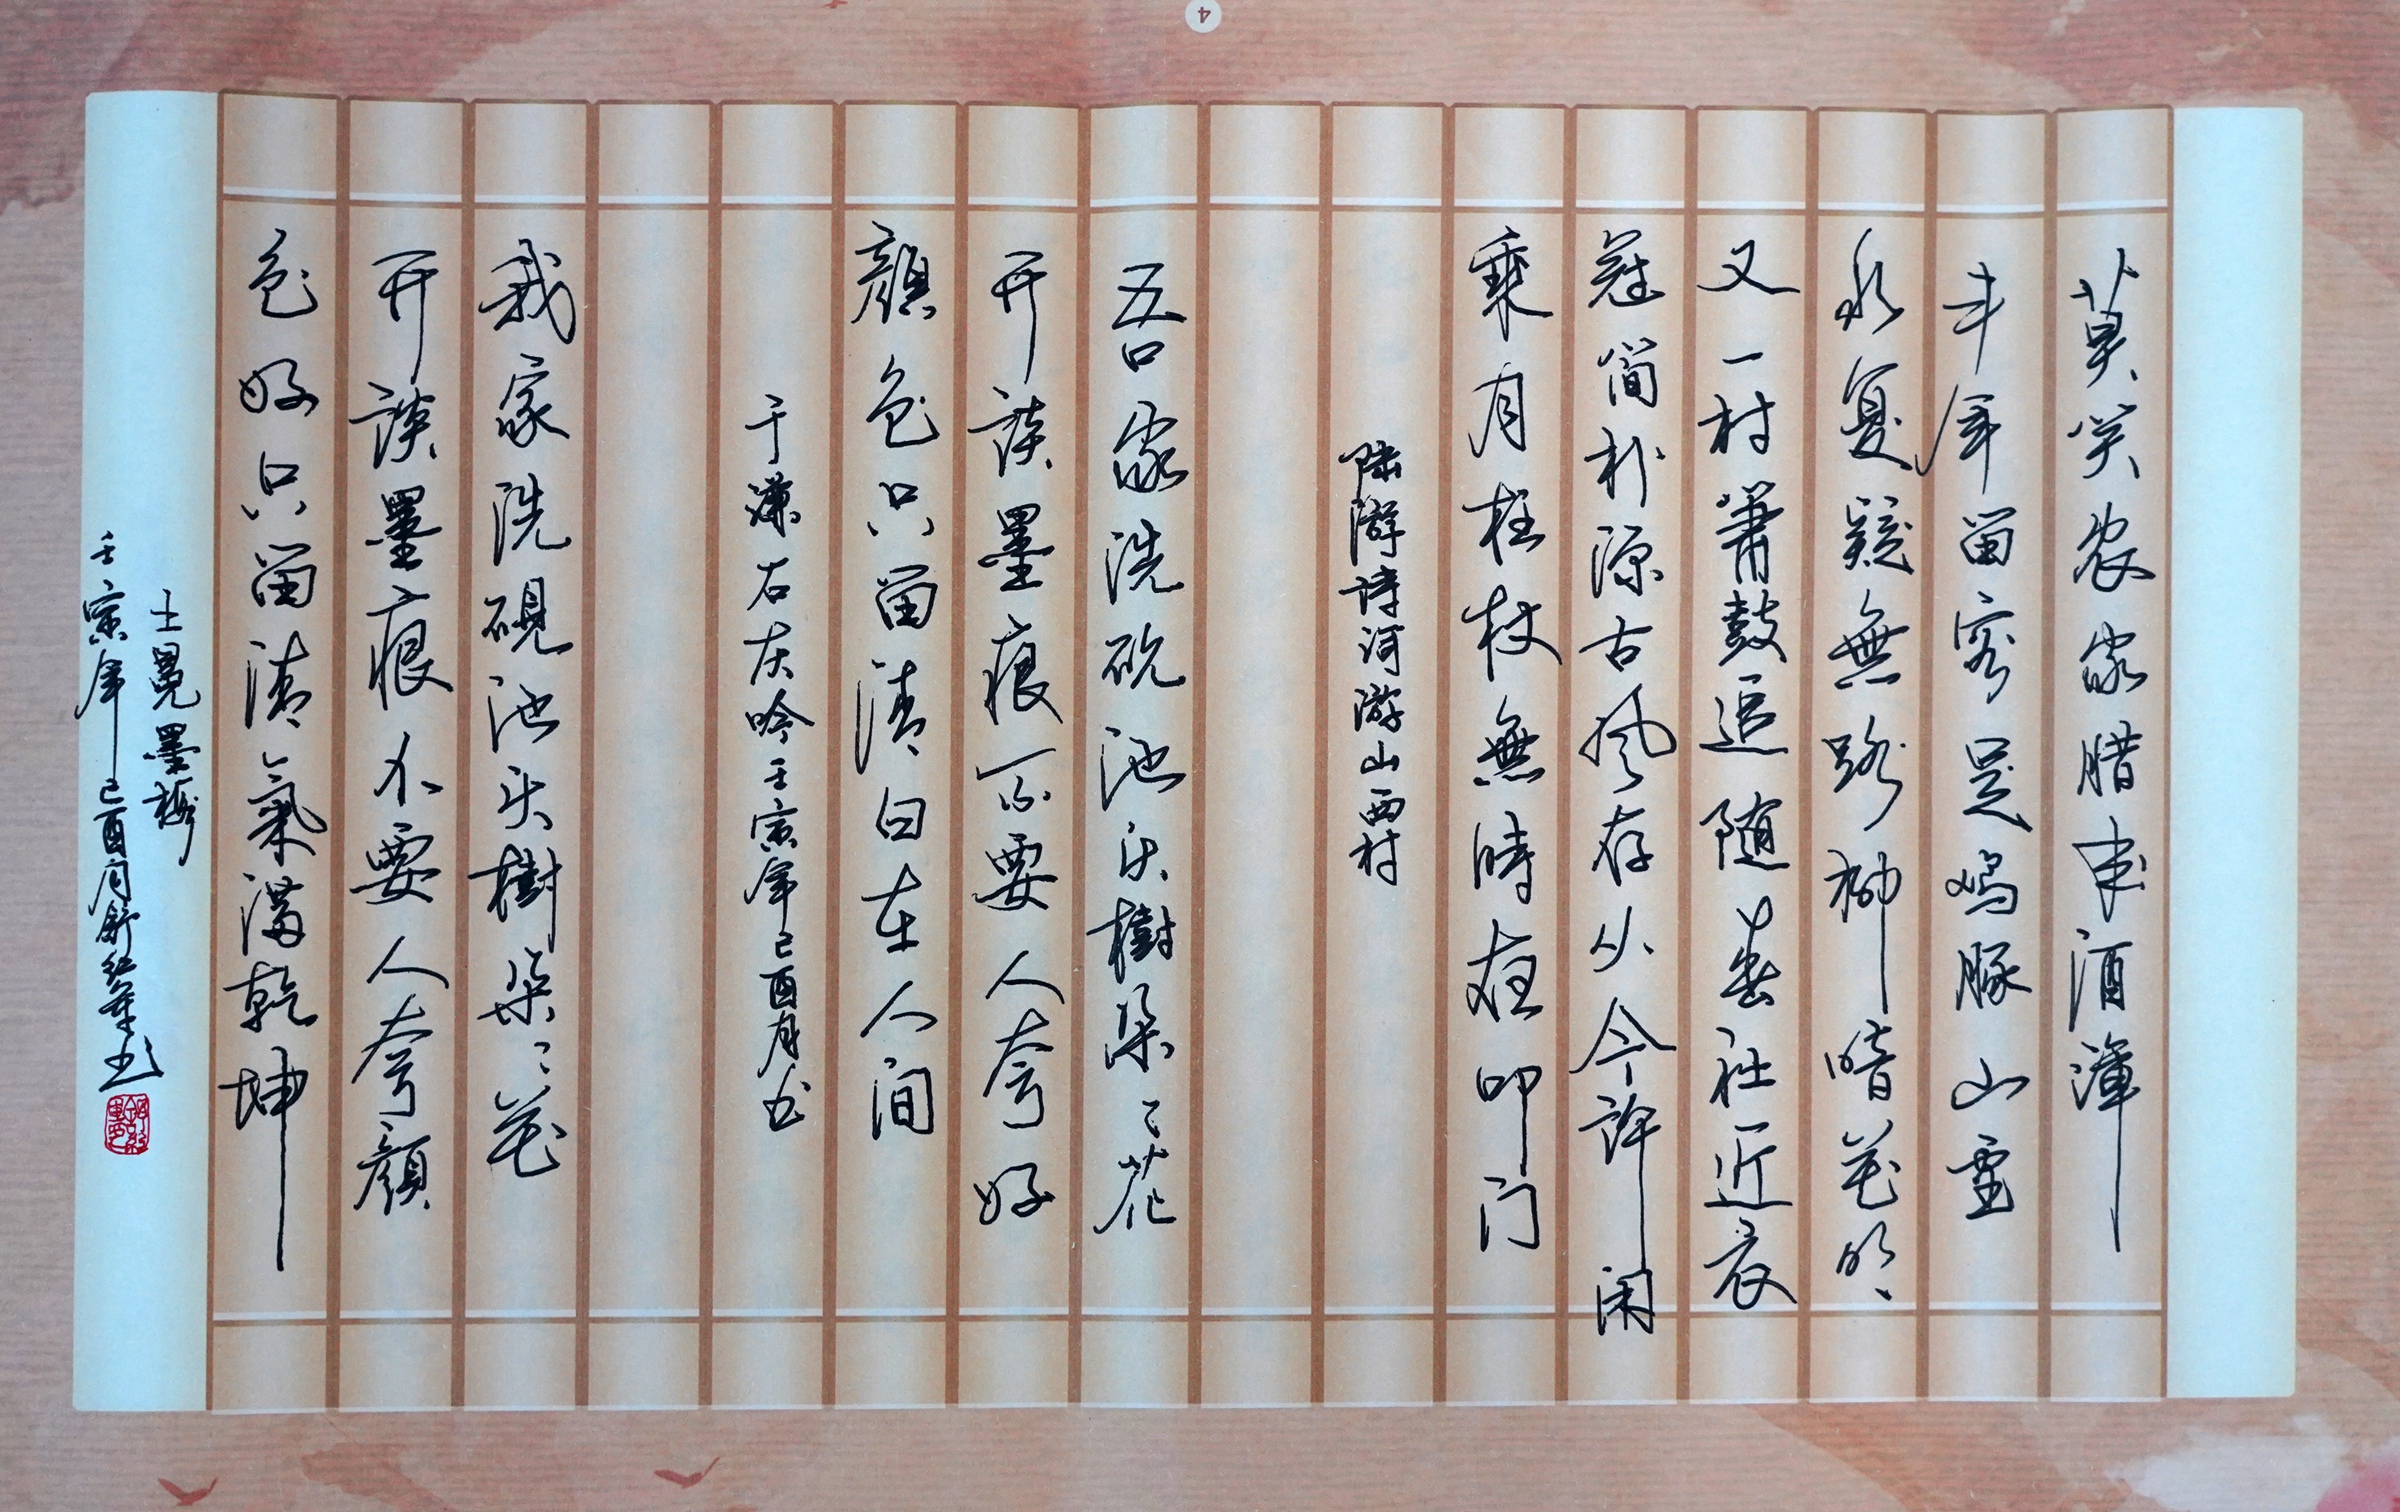 莫笑农家腊酒浑
丰年留客足鸡豚山重
水复疑無路柳暗花明
又一村箫鼓追随春社近衣
冠简朴源古风存从今许闲
乘月柱杖無时夜叩门
陆游诗词游山西村
吾家洗砚池头樹朶〻花
开淡墨痕不要人夸好
顔色只留清白在人间
于谦石灰吟壬寅年己酉月书
我家洗硯池头樹朶〻花
开淡墨痕不要人夸顔
色好只留清氣满乾坤
王冕墨梅
壬寅年己酉月舒红军书
4